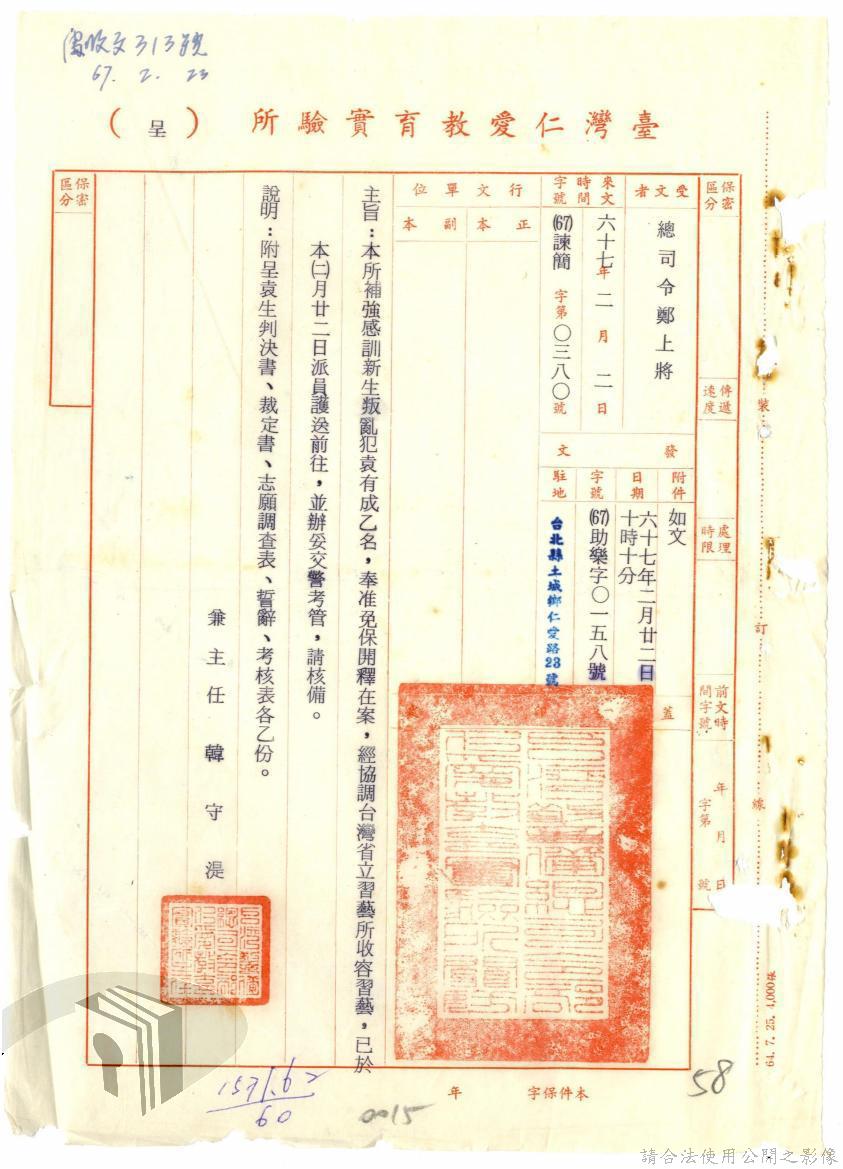 收文313號
67. 2. 23
臺灣仁愛教育實驗所（呈）
保密區分
傳遞速度
處理時限
前文時間字號
年月日
字第號
受文者
總司令鄭上將
來文時間字號
六十七年二月二日
(67)諫簡字第○三八○號
行文單位
正本
副本
發文
附件
如文
日期
六十七年二月廿二日十時十分
字號
(67)助樂字○一五八號
駐地
台北縣土城鄉仁愛路23號
蓋
主旨：本所補強感訓新生叛亂犯袁有成乙名，奉准免保開釋在案，經協調台灣省立習藝所收容習藝，已於
本㈡月廿二日派員護送前往，並辦妥交警考管，請核備。
說明：附呈袁生判決書、裁定書、志願調查表、誓辭、考核表各乙份。
兼主任 韓守湜
保密區分
裝
訂
線
64. 7. 25. 4,000張
本件保字
年
58
0015
60
請合法使用公開之影像